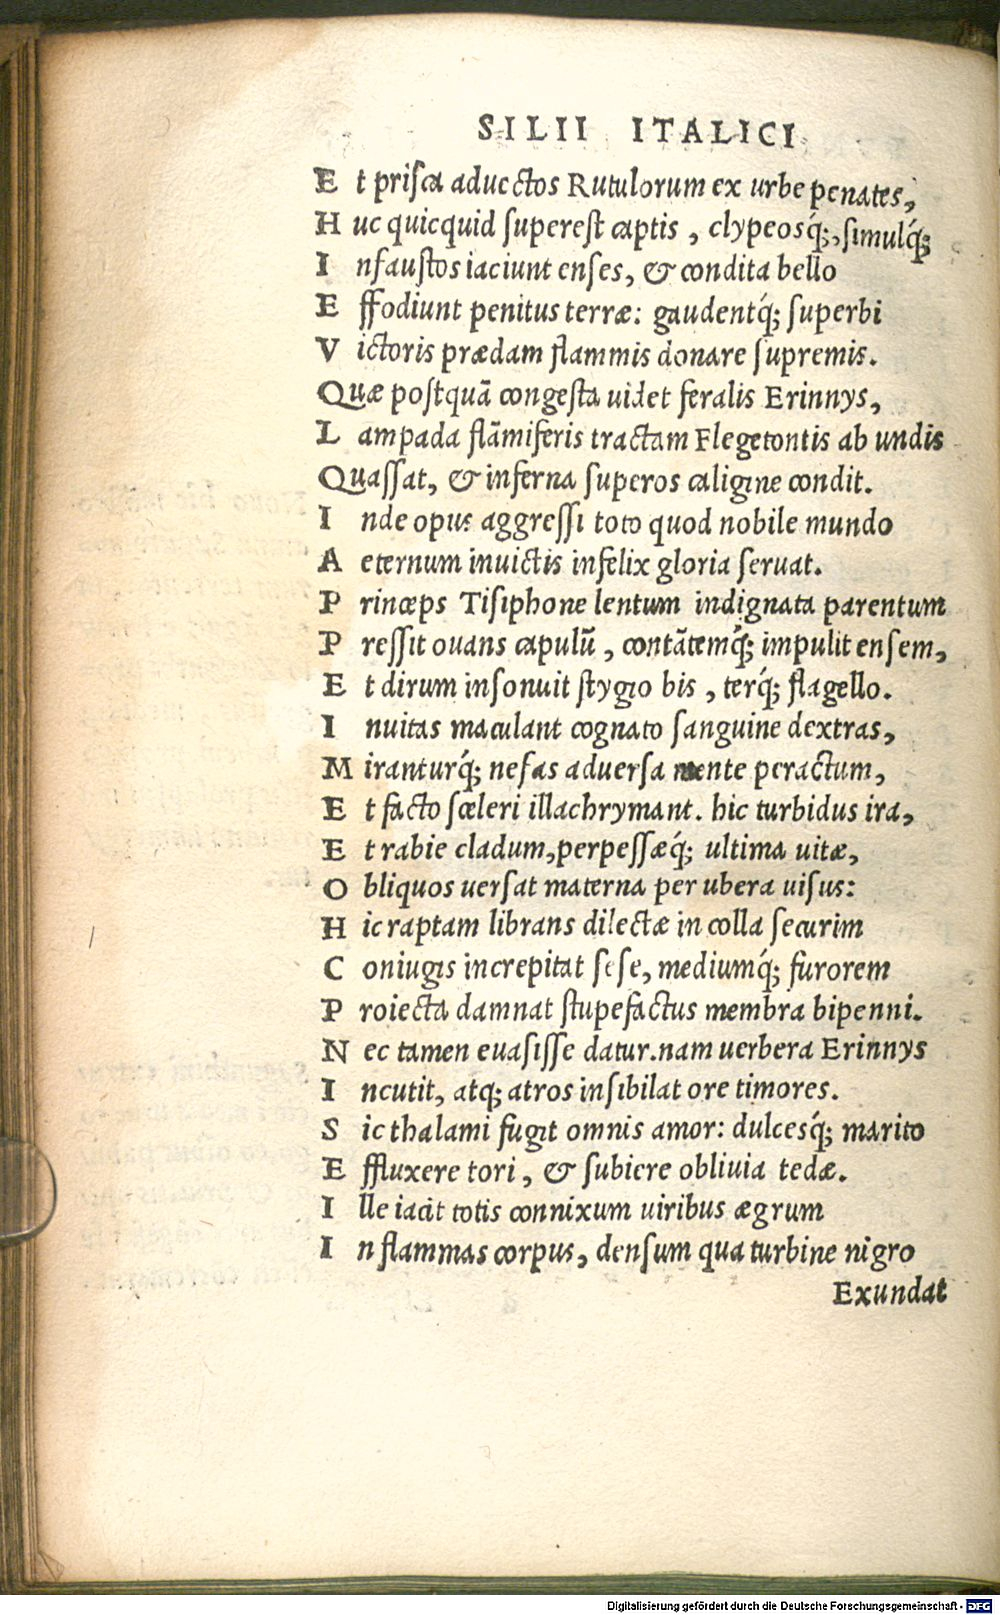 SILII ITALICI
Et prisca aduectos Rutulorum ex urbe penates,
Huc quicquid superest captis, clypeosq́;, simulq́;
Infaustos iaciunt enses, & condita bello
Effodiunt penitus terræ: gaudentq́; superbi
Victoris prædam flammis donare supremis.
Quæ postquā congesta uidet feralis Erinnys,
Lampada flāmiferis tractam Flegetontis ab undis
Quassat, & inferna superos caligine condit.
Inde opus aggressi toto quod nobile mundo
Aeternum inuictis infelix gloria seruat.
Princeps Tisiphone lentum indignata parentum
Pressit ouans capulū, contātemq́; impulit ensem,
Et dirum insonuit stygio bis, terq́; flagello.
Inuitas maculant cognato sanguine dextras,
Miranturq́; nefas aduersa mente peractum,
Et facto sceleri illachrymant. hic turbidus ira,
Et rabie cladum, perpessæq́; ultima uitæ,
Obliquos uersat materna per ubera uisus:
Hic raptam librans dilectæ in colla securim
Coniugis increpitat sese, mediumq́; furorem
Proiecta damnat stupefactus membra bipenni.
Nec tamen euasisse datur. nam uerbera Erinnys
Incutit, atq; atros insibilat ore timores.
Sic thalami fugit omnis amor: dulcesq́; marito
Effluxere tori, & subiere obliuia tedæ.
Ille iacit totis connixum uiribus ægrum
In flammas corpus, densum qua turbine nigro
Exundat
Digitalisierung gefördert durch die Deutsche Forschungsgemeinschaft - DFG